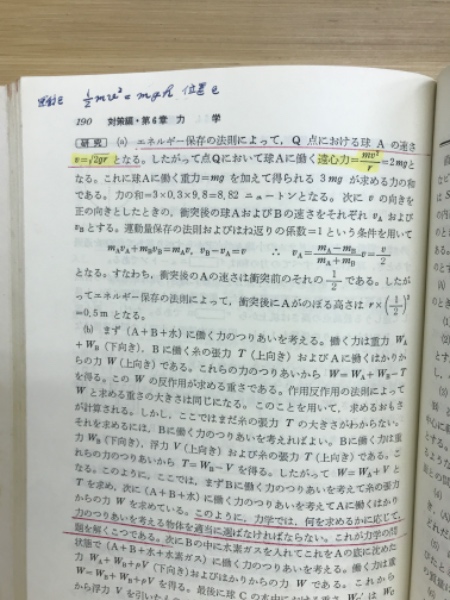 運動E ½mv²=mgh 位置E
190 対策編・第6章 力 学
研究 (a) エネルギー保存の法則によって，Q点における球Aの速さ
v=√2gr となる。したがって点Qにおいて球Aに働く遠心力=mv²/r=2mgと
なる。これに球Aに働く重力=mgを加えて得られる3mgが求める力の和
である。力の和=3×0.3×9.8=8.82 ニュートンとなる。次にvの向きを
正の向きとしたときの，衝突後の球AおよびBの速さをそれぞれvA および
vBとする。運動量保存の法則およびはね返りの係数=1という条件を用いて
mAvA+mBvB=mAv, vB−vA=v ∴ vA=(mA−mB)/(mA+mB)v=v/2
となる。すなわち，衝突後のAの速さは衝突前のそれの1/2である。したが
ってエネルギー保存の法則によって，衝突後にAがのぼる高さはr×(1/2)²
=0.5m となる。
(b) まず(A+B+水)に働く力のつりあいを考える。働く力は重力WA
+WB(下向き)，Bに働く糸の張力T(上向き)およびAに働くはかりか
らの力W(上向き)である。これらの力のつりあいからW=WA+WB−T
を得る。このWの反作用が求める重さである。作用反作用の法則によって
Wと求める重さの大きさは同じになる。このことを用いて，求めるおもさ
が計算される。しかし，ここではまだ糸の張力Tの大きさがわからない。
それを求めるには，Bに働く力のつりあいを考えればよい。Bに働く力は重
力WB(下向き)，浮力V(上向き)および糸の張力T(上向き)である。こ
れらの力のつりあいからT=WB−Vを得る。したがってW=WA+Vと
なる。このように，ここでは，まずBに働く力のつりあいを考えて糸の張力
Tを求め，次に(A+B+水)に働く力のつりあいを考えてAに働くはかり
からの力Wを求めている。このように，力学では，何を求めるかに応じて，
力のつりあいを考える物体を適当に選ばなければならない。これが力学の問
題を解くこつである。次にBの中に水素ガスを入れてこれをAの底に沈めた
状態で(A+B+水+水素ガス)に働く力のつりあいを考える。働く力は重
力WA+WB+ρV(下向き)およびはかりからの力Wである。これから
W=WA+WB+ρVを得る。最後に球Cの水中における重さ
から浮力Vを引いたもの